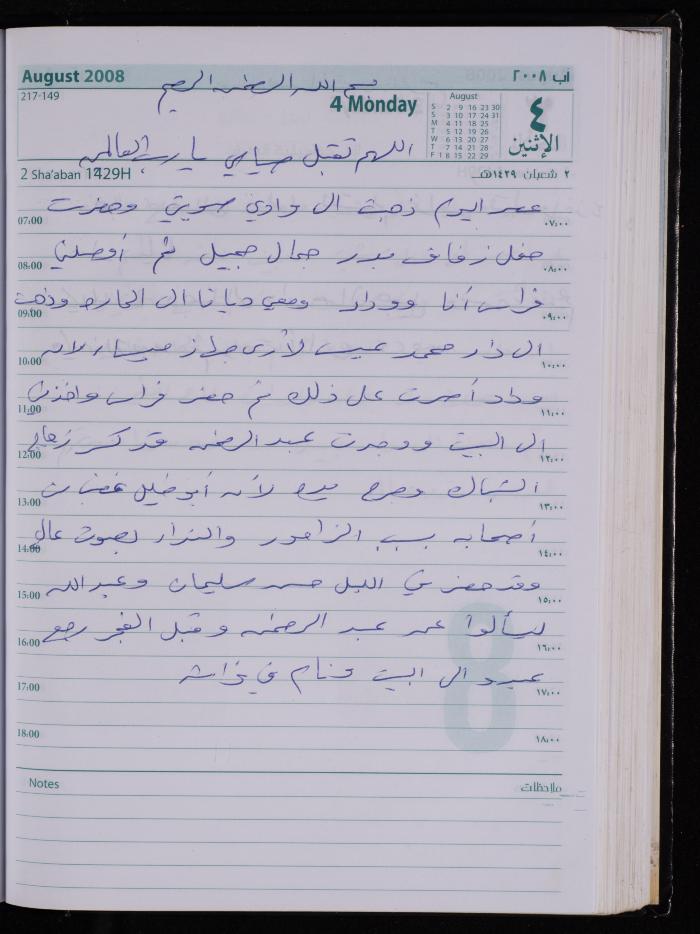 August 2008
آب ٢٠٠٨
بسم الله الرحمن الرحيم
217-149
4 Monday
August
S 2 9 16 23 30
S 3 10 17 24 31
M 4 11 18 25
T 5 12 19 26
W 6 13 20 27
T 7 14 21 28
F 1 8 15 22 29
٤
الإثنين
اللهم تقبل صيامي يا رب العالمين
2 Sha'aban 1429H
٢ شعبان ١٤٢٩هـ
عصر اليوم ذهبت الى وادي وحضرت
07:00
٠٧:٠٠
حفل زفاف بدر جمال جميل ثم أوصلني
08:00
٠٨:٠٠
فراس أنا ووداد ومعي ديانا ال الحاره وذهبت
09:00
٠٩:٠٠
ال دار محمد لأرى ميساء لانه
10:00
١٠:٠٠
وداد أصرت على ذلك ثم حضر فراس واخذني
11:00
١١:٠٠
ال البيت ووجدت عبد الرحمن قد كسر زجاج
12:00
١٢:٠٠
الشباك وجرح يده لأنه أبو خليل غضبان
13:00
١٣:٠٠
أصحابه بسبب الزامور والنداء بصوت عالي
14:00
١٤:٠٠
وقد حضر في الليل حسن سليمان وعبد الله
15:00
١٥:٠٠
ليسألوا عن عبد الرحمن وقبل الفجر رجع
16:00
١٦:٠٠
عبد ال البيت ونام في فراشه
17:00
١٧:٠٠
18:00
١٨:٠٠
8
Notes
ملاحظات